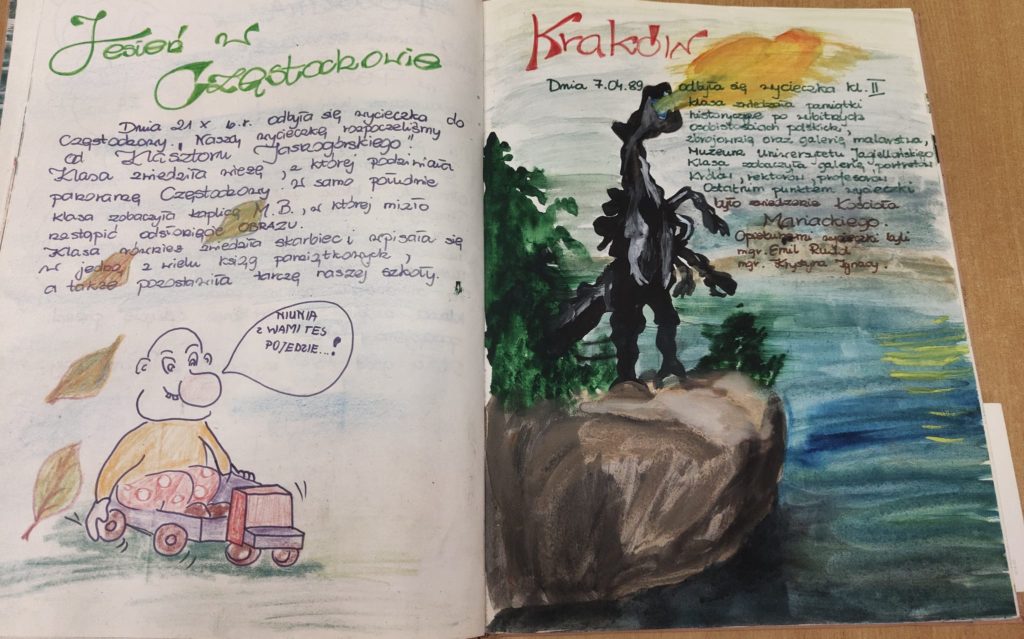 Jesień w
Częstochowie
Dnia 21 X b.r. odbyła się wycieczka do
Częstochowy. Naszą wycieczkę rozpoczeliśmy
od Klasztoru Jasnogórskiego.
Klasa zwiedziła wieżę, z której podziwiała
panoramę Częstochowy. W samo południe
klasa zobaczyła kaplicę M.B., w której miało
nastąpić odsłonięcie OBRAZU.
Klasa również zwiedziła skarbiec i wpisała się
w jedną z wielu ksiąg pamiątkowych,
a także pozostawiła tarczę naszej szkoły.
NIUNIA
Z WAMI TES
POJEDZIE...?
Kraków
Dnia 7.04.89 odbyła się wycieczka kl. II
klasa zwiedzała pamiątki
historyczne po wybitnych
osobistościach polskich,
zbrojownią oraz galerię malarstwa,
Muzeum Uniwersytetu Jagiellońskiego
Klasa zobaczyła galerię portretów
Królów, rektorów, profesorów
Ostatnim punktem wycieczki
było zwiedzanie Kościoła
Mariackiego.
Opiekunami wycieczki byli
mgr. Emil
mgr. Krystyna Ignacy.